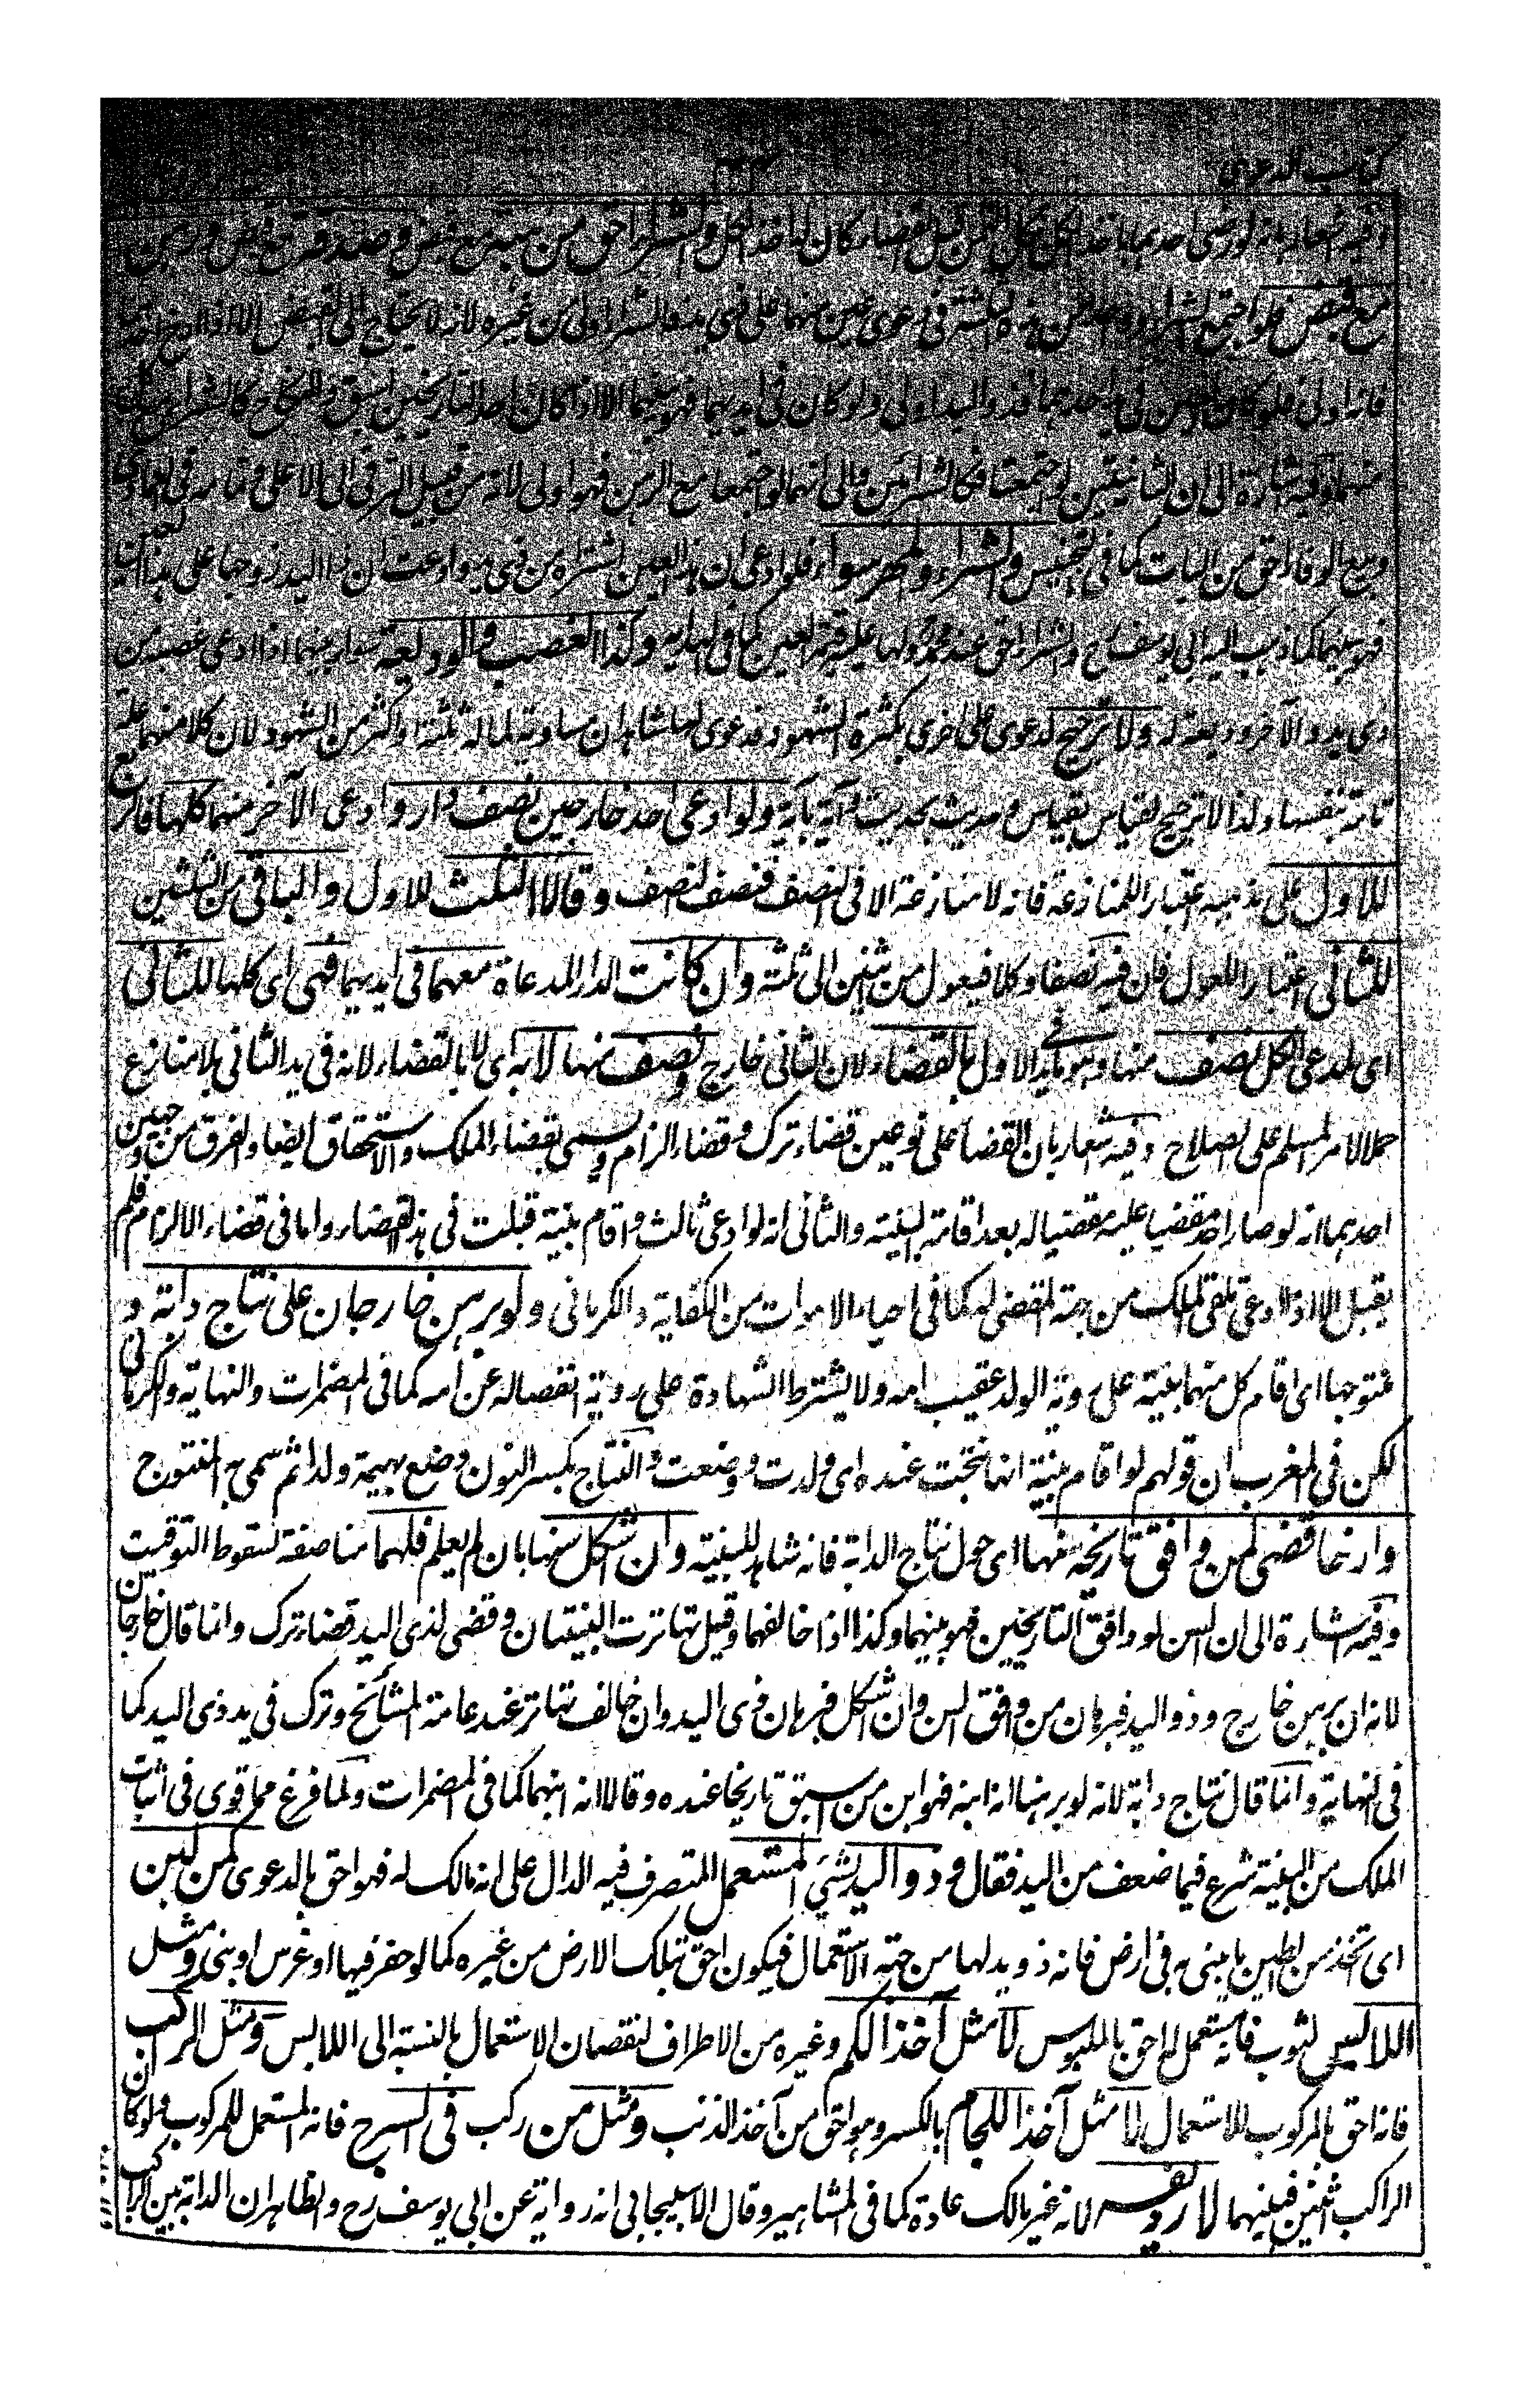 كتاب الدعوى
وفيه اشعار بانه لو رضى احدهما باخذ الكل بكل الثمن قبل القضاء كان له اخذ الكل والشراء احق من هبة مع قبض وصدقة مع قبض ورهن
مع قبض فلو اجتمع الشراء لانه لا يحتاج الى القبض الا اذا
فانه اولى فلو كان العين فى يد احدهما فذو اليد اولى ولو كان فى ايديهما فهو بينهما الا اذا كان احد التاريخين اسبق والنكاح كالشراء
منهما وفيه اشارة الى ان لو اجتمعتا فكالشرائين والى انهما لو اجتمعا مع الرهن فهو اولى لانه من قبيل الترقى الى الاعلى وتمامه فى العمادى
والشراء والمهر سواء فلو ادعى ان هذا العين اشتراه من ذى يد وادعت ان ذا اليد زوجها على هذا العين
فهو بينهما كما ذهب اليه ابى يوسف رح والشراء احق عند محمد ولها عليه قيمة العين كما فى الهداية وكذا الغصب والوديعة سواء بينهما اذا ادعى غصبه من
ذى يد والآخر وديعة له ولا ترجيح لدعوى على اخرى بكثرة الشهود فدعوى لها شاهدان مساوية لما له ثلثة او اكثر من الشهود لان كلا منهما علة
تامة بنفسها ولذا لا ترجيح لقياس بقياس وحديث بحديث وآية بآية ولو ادعى احد خارجين نصف دار وادعى الآخر منهما كلها فالربع
للاول على مذهبه اعتبارا للمنازعة فانه لا منازعة الا فى النصف فنصف لنصف وقالا الثلث للاول والباقى من الثلثين
للثانى اعتبارا للعول فان فيه نصفا وكلا فيعول من اثنين الى ثلثة وان كانت الدار المدعاة معهما فى ايديهما فهى اى كلها للثانى
اى لمدعى الكل نصف منها وهو ما فى يد الاول بالقضاء لان الثانى خارج ونصف منها لا به اى لا بالقضاء لانه فى يد الثانى بلا منازع
حملا لامر المسلم على الصلاح وفيه اشعار بان القضاء على نوعين قضاء ترك وقضاء الزام ويسمى بقضاء الملك والاستحقاق ايضا والفرق من وجهين
احدهما انه لو صار احد مقضيا عليه مقضيا له بعد اقامة البينة والثانى انه لو ادعى ثالث واقام بينة قبلت فى هذا القضاء واما فى قضاء الالزام فلم
يقبل الا اذا ادعى تلقى الملك من جهة المقضى له كما فى احياء الاموات من الكفاية والكرمانى ولو برهن خارجان على نتاج دابة و
نتوجها اى اقام كل منهما بينة على رؤية الولد عقيب امه ولا يشترط الشهادة على روية انفصاله عن امه كما فى المضمرات والنهاية والكرمانى
لكن فى المغرب ان قولهم لو اقام بينة انها نتجت عنده اى ولدت ووضعت والنتاج بكسر النون وضع بهيمة ولدا ثم سمى به المنتوج
وارخا قضى لمن وافق تاريخه سنها اى حول نتاج الدابة فانه شاهد للبينة وان اشكل سنها بان لم يعلم فلهما مناصفة لسقوط التوقيت
وفيه اشارة الى ان السن لو وافق التاريخين فهو بينهما وكذا اذا خالفهما وقيل تهاترت البينتان وقضى لذى اليد قضاء ترك وانما قال خارجان
لانه ان برهن خارج وذو اليد فبرهان من وافق السن وان اشكل فبرهان ذى اليد وان خالف تهاتر عند عامة المشائخ وترك فى يد ذى اليد كما
فى النهاية وانما قال نتاج دابة لانه لو برهنا انه ابنه فهو ابن من اسبق تاريخا عنده وقالا انه ابنهما كما فى المضمرات ولما فرغ مما قوى فى اثبات
الملك من البينة شرع فيما ضعف من اليد فقال وذو اليد لشئ المستعمل المتصرف فيه الدال على انه مالك له فهو احق بالدعوى كمن لبن
اى اتخذ من الطين ما يبنى به فى ارض فانه ذو يد لها من جهة الاستعمال فيكون احق بتلك الارض من غيره كما لو حفر فيها او غرس او بنى ومثل
اللابس لثوب فانه مستعمل له احق بالملبوس لا مثل آخذ الكم وغيره من الاطراف لنقصان الاستعمال بالنسبة الى اللابس ومثل الراكب
فانه احق بالمركوب للاستعمال لا مثل آخذ اللجام بالكسر وهو احق من آخذ الذنب ومثل من ركب فى السرج فانه المستعمل للمركوب ولو كان
الراكب اثنين فبينهما لا رديفه لانه غير مالك عادة كما فى المشاهير وقال الاسبيجابى انه رواية عن ابى يوسف رح والظاهر ان الدابة بين الراكب